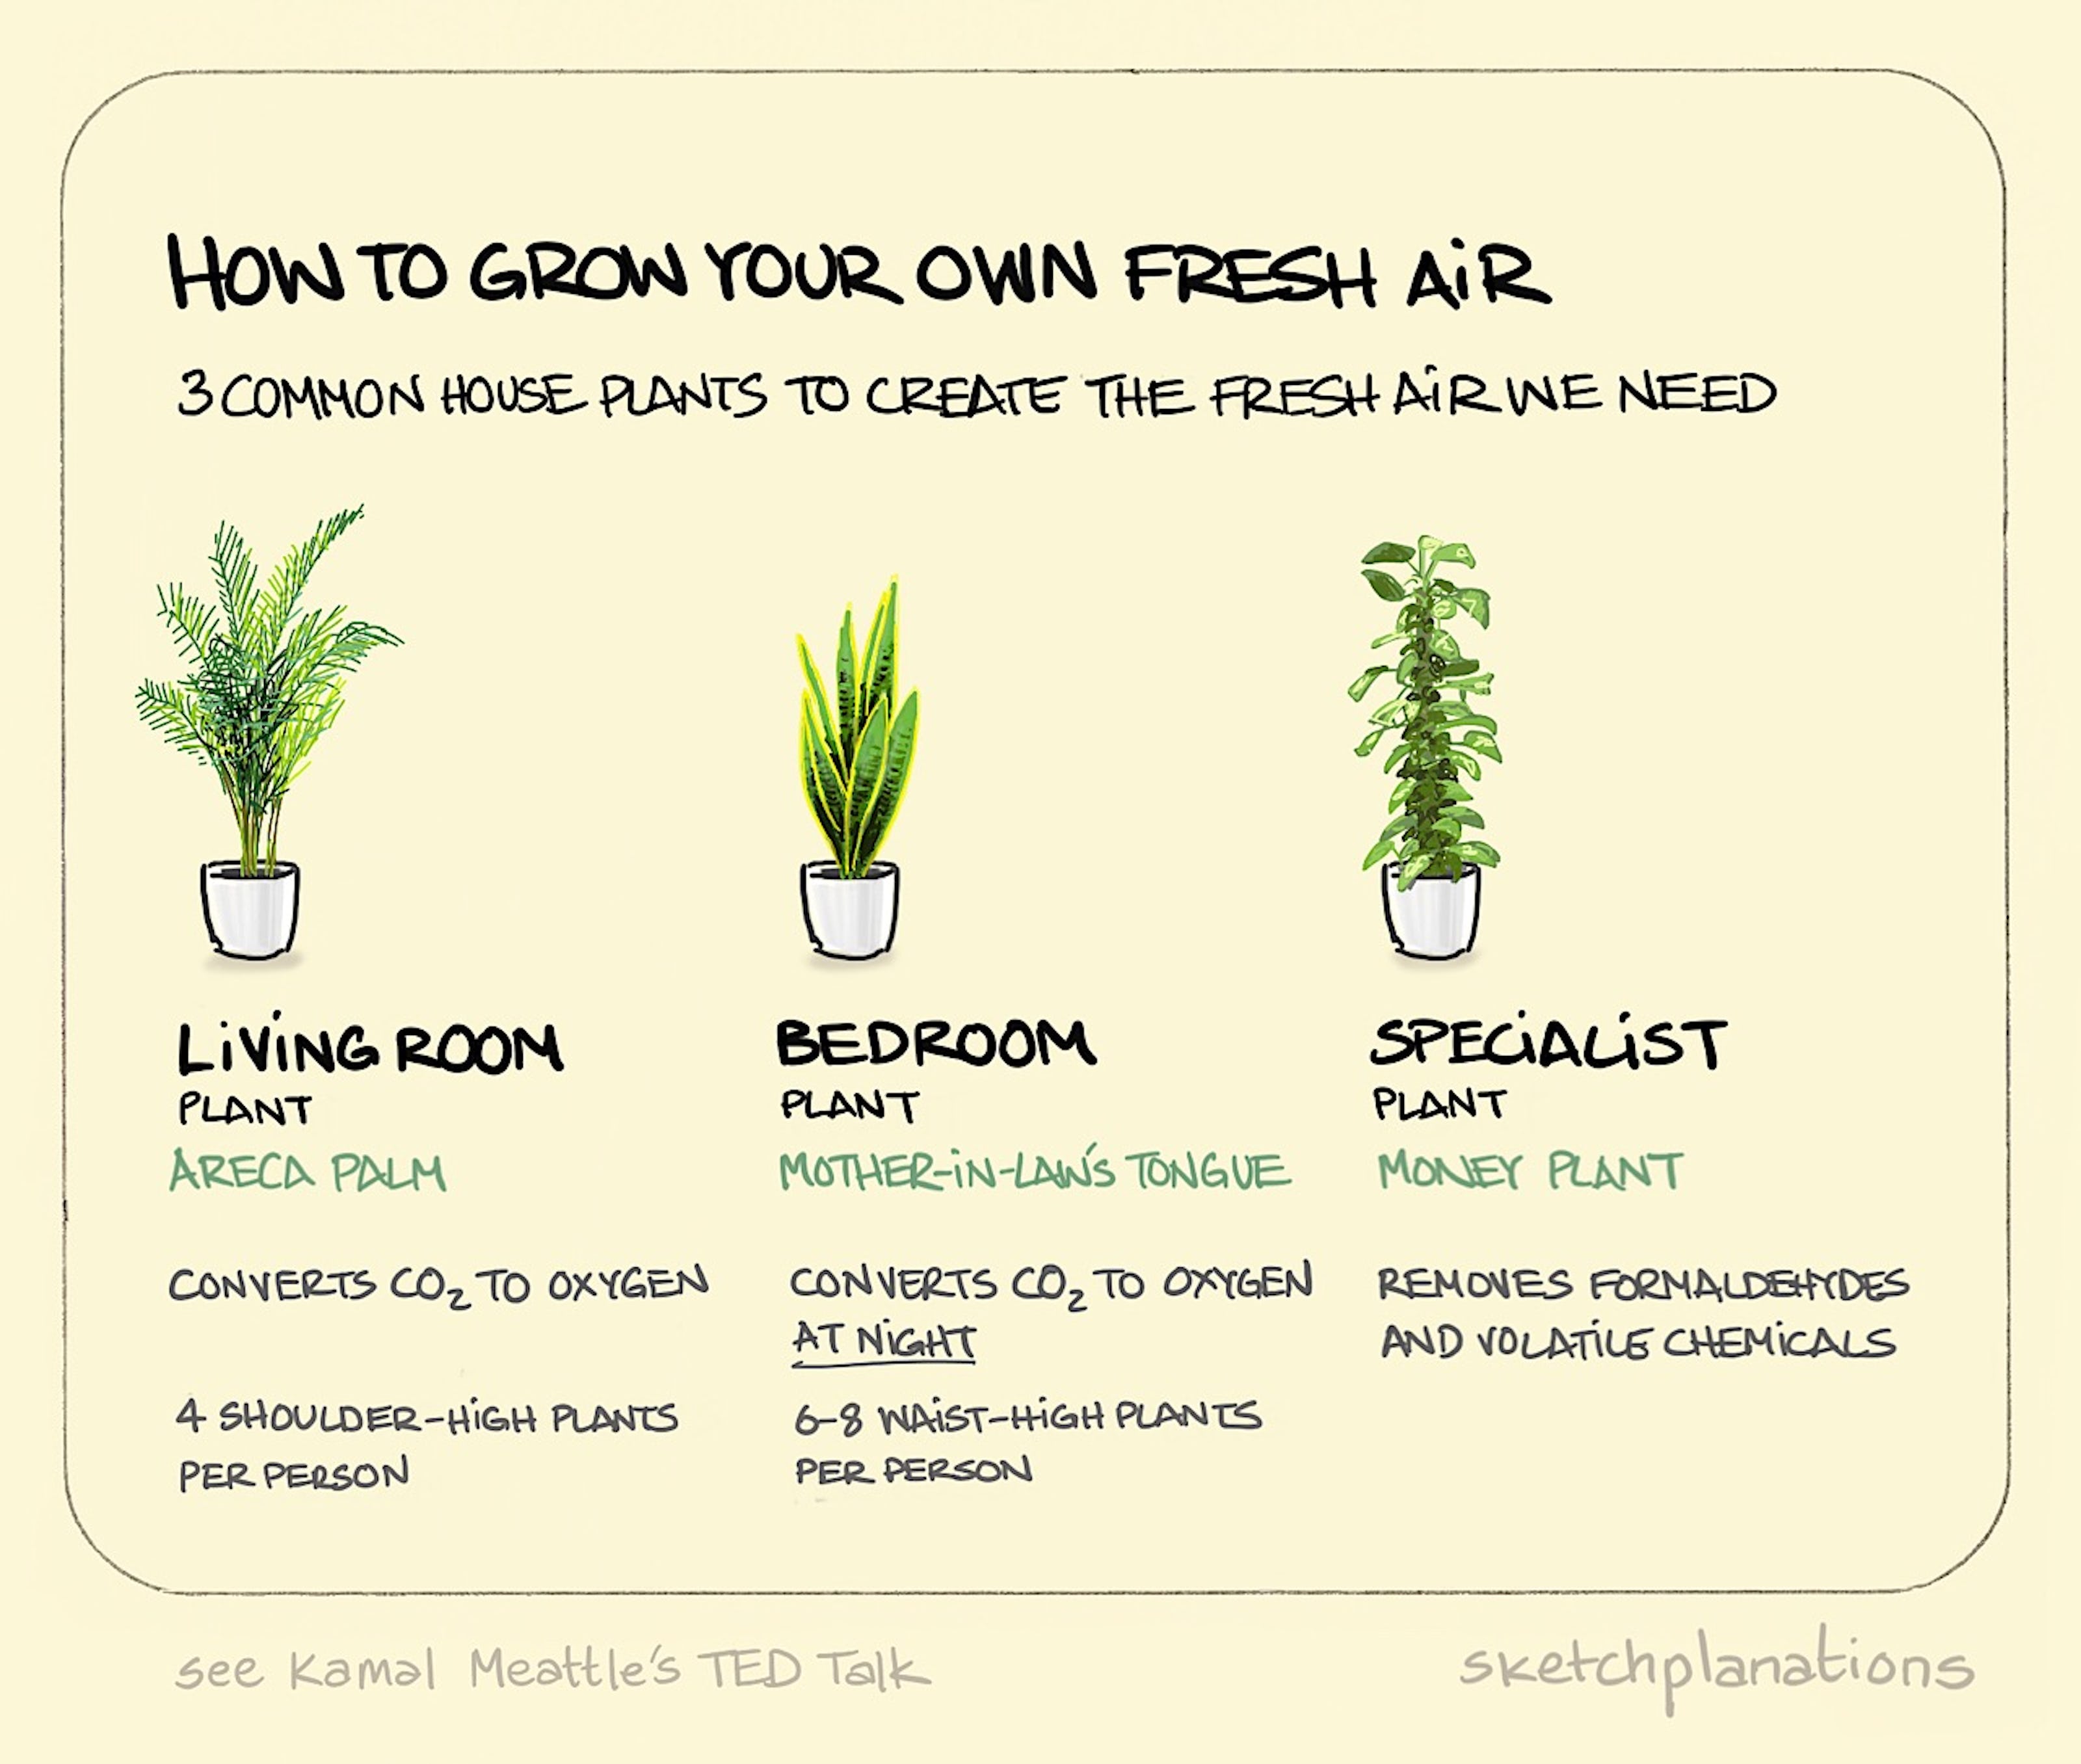 HOW TO GROW YOUR OWN FRESH AiR
3 COMMON HOUSE PLANTS TO CREATE THE FRESH AiR WE NEED
LiViNG ROOM
PLANT
ARECA PALM
CONVERTS CO₂ TO OXYGEN
4 SHOULDER-HiGH PLANTS
PER PERSON
BEDROOM
PLANT
MOTHER-iN-LAW'S TONGUE
CONVERTS CO₂ TO OXYGEN
AT NiGHT
6-8 WAiST-HiGH PLANTS
PER PERSON
SPECiALiST
PLANT
MONEY PLANT
REMOVES FORMALDEHYDES
AND VOLATiLE CHEMiCALS
see Kamal Meattle's TED Talk
sketchplanations